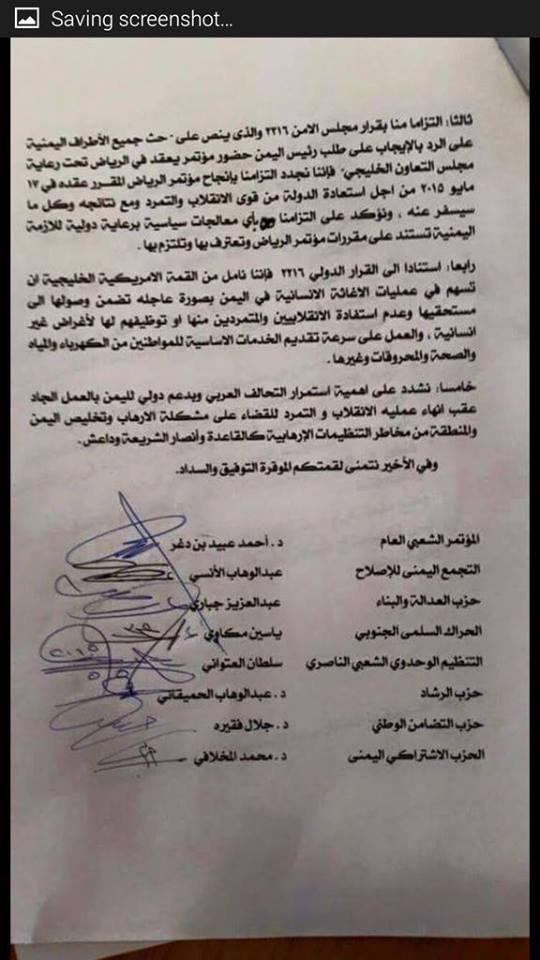 Saving screenshot...
ثالثا: التزاما منا بقرار مجلس الامن ٢٢١٦ والذي ينص على - حث جميع الأطراف اليمنية
على الرد بالإيجاب على طلب رئيس اليمن حضور مؤتمر يعقد في الرياض تحت رعاية
مجلس التعاون الخليجي- فإننا نجدد التزامنا بإنجاح مؤتمر الرياض المقرر عقده في ١٧
مايو ٢٠١٥ من اجل استعادة الدولة من قوى الانقلاب والتمرد ومع نتائجه وكل ما
سيسفر عنه ، ونؤكد على التزامنا بأي معالجات سياسية برعاية دولية للازمة
اليمنية تستند على مقررات مؤتمر الرياض وتعترف بها وتلتزم بها .
رابعا: استنادا الى القرار الدولي ٢٢١٦ فإننا نامل من القمة الامريكية الخليجية ان
تسهم في عمليات الاغاثة الانسانية في اليمن بصورة عاجله تضمن وصولها الى
مستحقيها وعدم استفادة الانقلابيين والمتمردين منها او توظيفهم لها لأغراض غير
انسانية ، والعمل على سرعة تقديم الخدمات الاساسية للمواطنين من الكهرباء والمياه
والصحة والمحروقات وغيرها .
خامسا: نشدد على اهمية استمرار التحالف العربي وبدعم دولي لليمن بالعمل الجاد
عقب انهاء عمليه الانقلاب و التمرد للقضاء على مشكلة الارهاب وتخليص اليمن
والمنطقة من مخاطر التنظيمات الإرهابية كالقاعدة وأنصار الشريعة وداعش.
وفي الأخير نتمنى لقمتكم الموقرة التوفيق والسداد.
المؤتمر الشعبي العام د. أحمد عبيد بن دغر
التجمع اليمني للإصلاح عبدالوهاب الأنسي
حزب العدالة والبناء عبدالعزيز جباري
الحراك السلمي الجنوبي ياسين مكاوي
التنظيم الوحدوي الشعبي الناصري سلطان العتواني
حزب الرشاد د. عبدالوهاب الحميقاني
حزب التضامن الوطني د. جلال فقيره
الحزب الاشتراكي اليمني د. محمد المخلافي